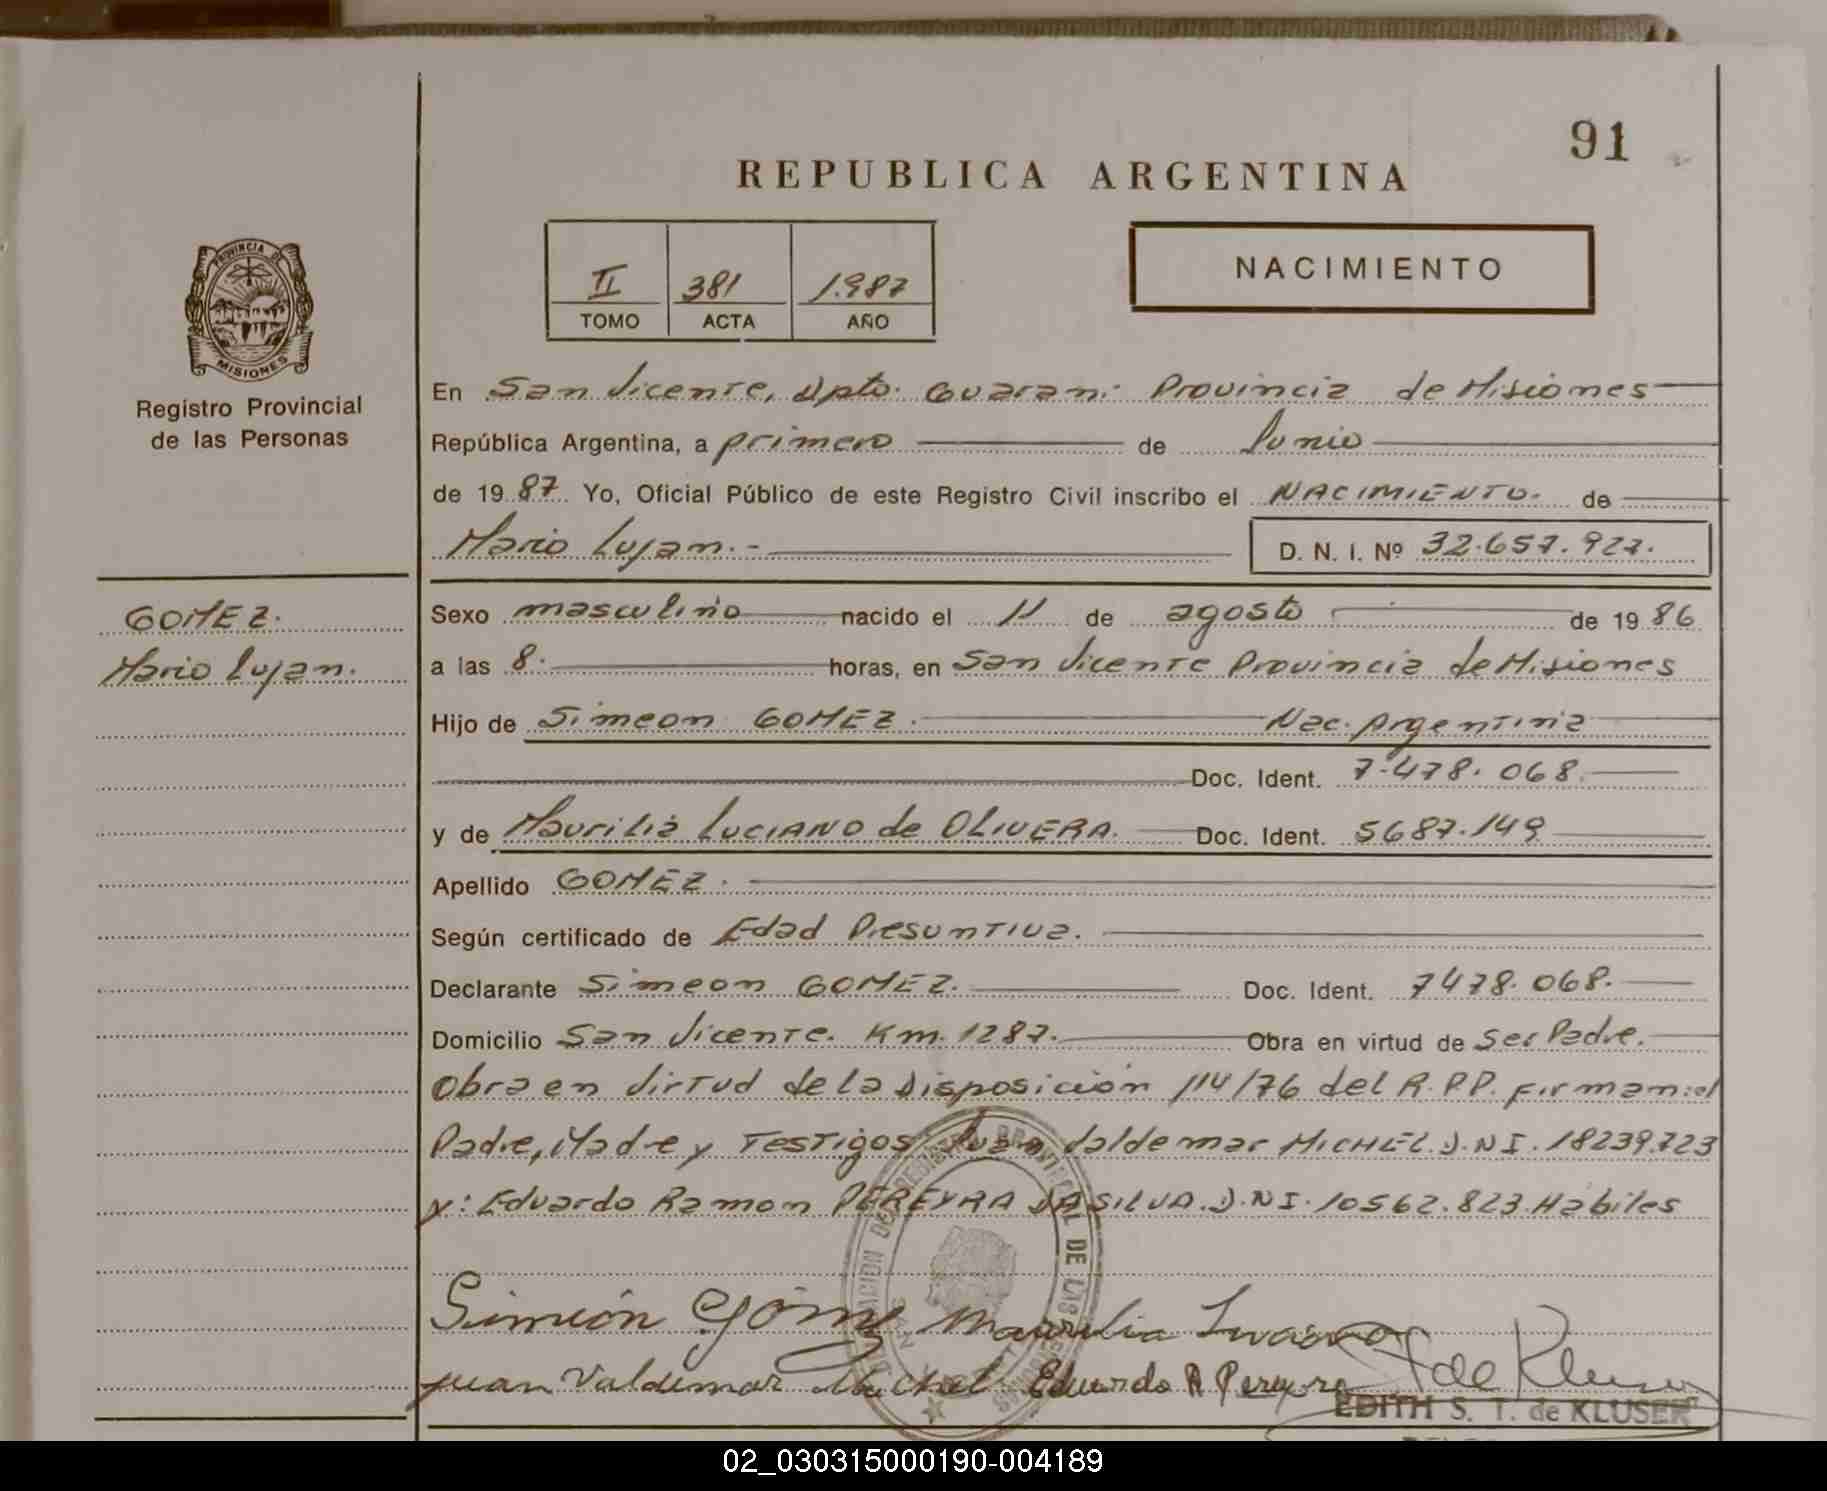 91
REPUBLICA ARGENTINA
PROVINCIA DE
MISIONES
Registro Provincial
de las Personas
II 381 1.987
TOMO ACTA AÑO
NACIMIENTO
En San Vicente, Dpto. Guarani Provincia de Misiones
República Argentina, a primero de Junio
de 19 87 Yo, Oficial Público de este Registro Civil inscribo el NACIMIENTO. de
Mario Lujan.-
D. N. I. Nº 32.657.927.
GOMEZ.
Mario Lujan.
Sexo masculino nacido el 11 de agosto de 19 86
a las 8. horas, en San Vicente Provincia de Misiones
Hijo de Simeon GOMEZ. Nac. Argentina
Doc. Ident. 7.478.068.
y de Maurilia LUCIANO de OLIVERA. Doc. Ident. 5687.149
Apellido GOMEZ.
Según certificado de Edad Presuntiva.
Declarante Simeon GOMEZ. Doc. Ident. 7478.068.
Domicilio San Vicente. Km. 1287. Obra en virtud de Ser Padre.
Obra en Virtud de la Disposición 114/76 del R.P.P. firman: el
Padre, Madre y Testigos Juan Valdemar MICHEL. D.N.I. 18239.723
y: Eduardo Ramon PEREYRA DASILVA. D.N.I. 10562.823. Habiles
Simeón Gómez Maurilia Luciano
Juan Valdemar Michel Eduardo R Pereyra de Kluser
EDITH S. T. de KLUSER
02_030315000190-004189